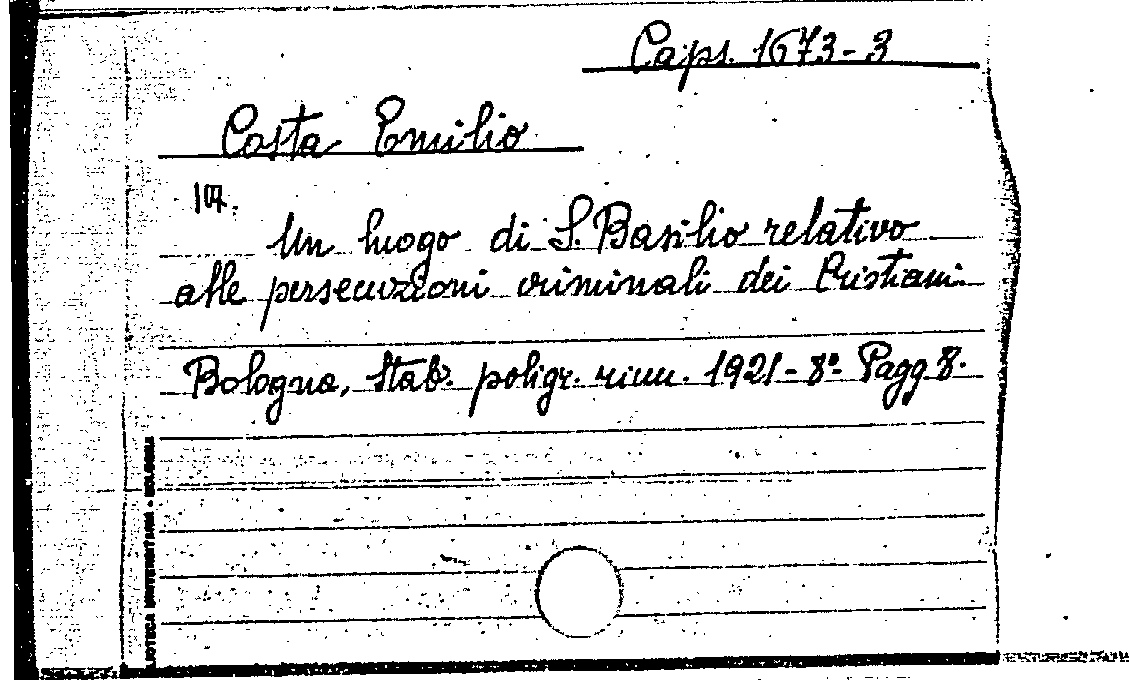 Caps. 1673-3
Costa Emilio
107.
Un luogo di S. Basilio relativo
alle persecuzioni criminali dei Cristiani.
Bologna, Stab. poligr. riun. 1921-8º Pagg 8.
BIBLIOTECA UNIVERSITARIA - BOLOGNA